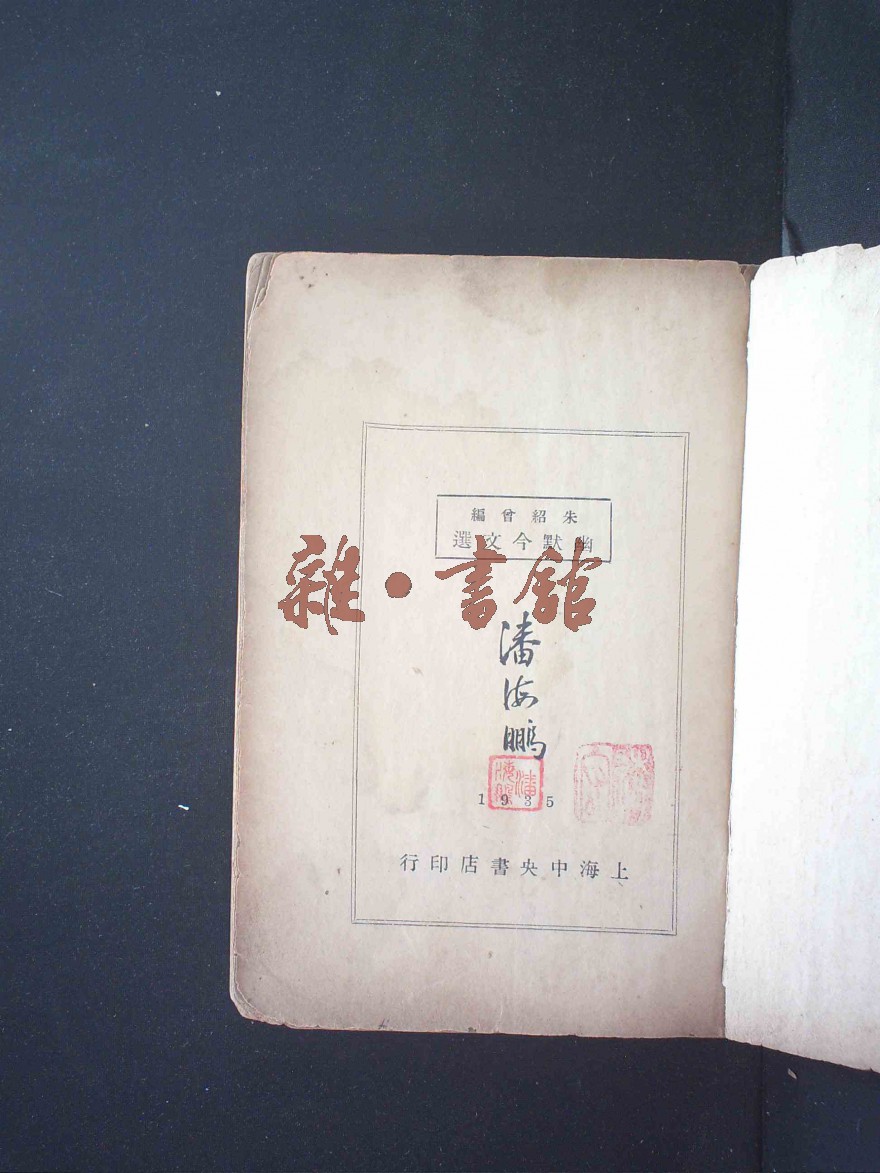 朱紹曾編
幽默今文選
雜·書館
潘海鵬
潘海鵬
1935
上海中央書店印行